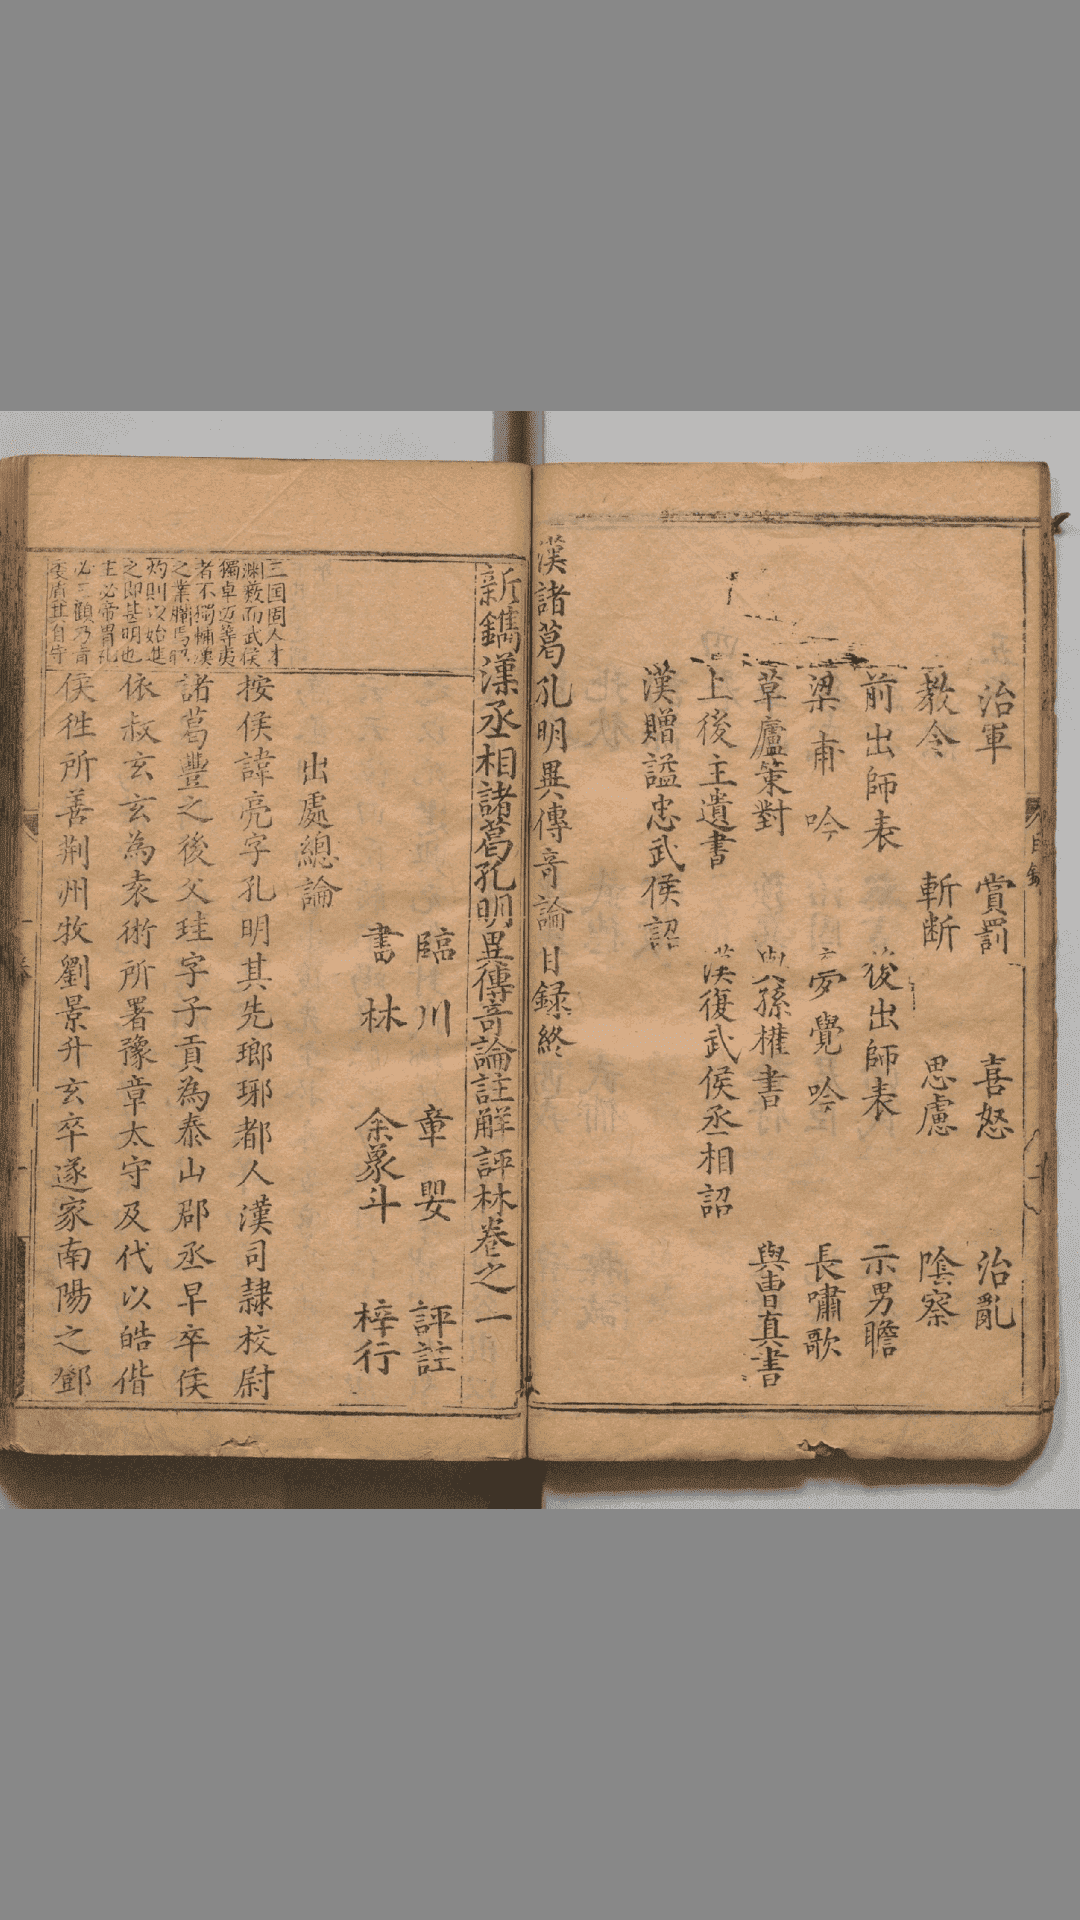 治軍 賞罰 喜怒 治亂
教令 斬断 思慮 陰察
前出師表 後出師表 示男瞻
梁甫吟 夢覺吟 長嘯歌
草廬策對 與孫權書 與曹真書
上後主遺書 漢復武侯丞相詔
漢贈謚忠武侯詔
漢諸葛孔明異傳奇論目録終
新鐫漢丞相諸葛孔明異傳奇論註解評林卷之一
臨川 章嬰 評註
書林 余象斗 梓行
出處總論
三国固人才
渊藪而武侯
獨卓迈等夷
者不獨恢漢
之業
灼則以始進
之即甚明也
主必帝胃孔
必三顧乃肯
其自守
按侯諱亮字孔明其先瑯琊都人漢司隷校尉
諸葛豐之後父珪字子貢為泰山郡丞早卒侯
依叔玄玄為袁術所署豫章太守及代以皓偕
侯徃所善荆州牧劉景升玄卒遂家南陽之鄧